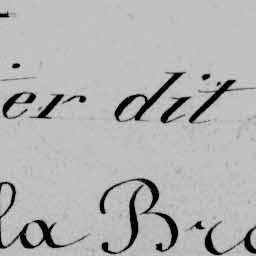 ier dit
la Bra